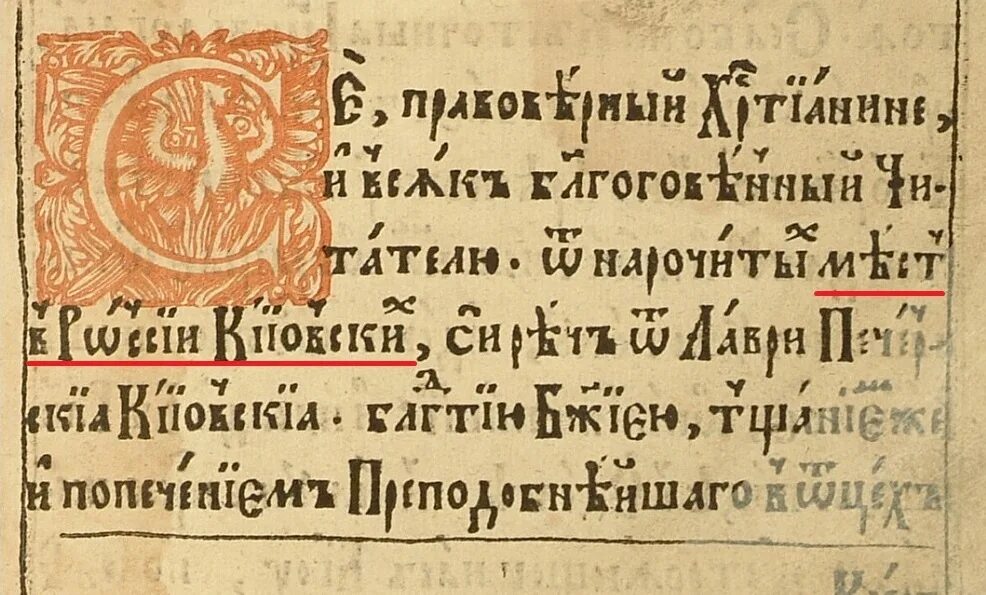 СЕ́, правовѣ́рный Хрⷭ҇тїа́нине,
И҆ всѧ́къ бл҃гоговѣ́нный Чи-
та́телю. Ѿ нарочи́тыⷯ мѣ́ст
в҆ Рѡ́ссїи Кї́ѡвскиⷯ, си рѣ́чъ ѿ Ла́ври Пече́р-
скїѧ Кї́ѡвскїѧ. бл҃гⷣтїю Бж҃їєю, тща́нїєже
и҆ попече́нїємъ Преподобнѣ́йшаго в ѿцехъ